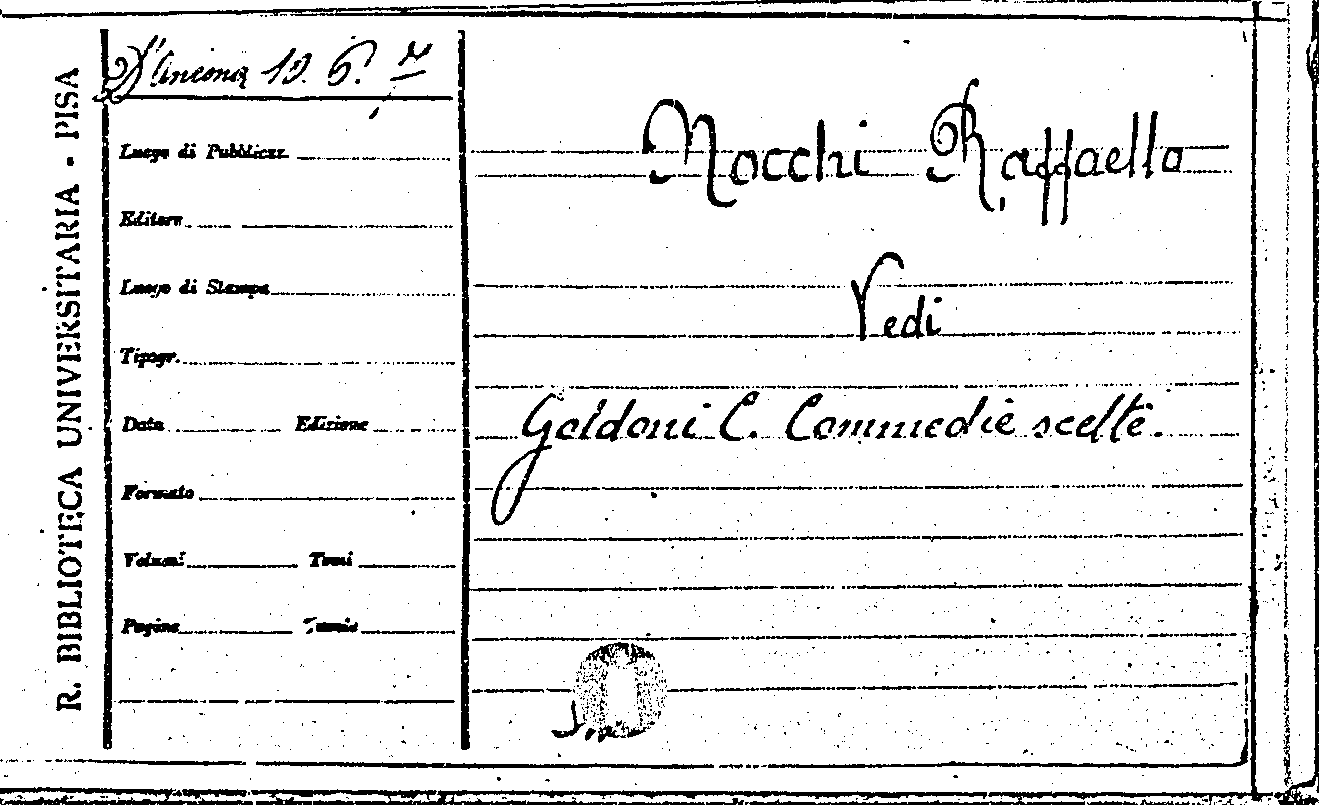 R. BIBLIOTECA UNIVERSITARIA - PISA
D'Ancona 19. 6.
Luogo di Pubblicaz.
Editore
Luogo di Stampa
Tipogr.
Data Edizione
Formato
Volumi Tomi
Pagine
Nocchi Raffaello
Vedi
Goldoni C. Commedie scelte.